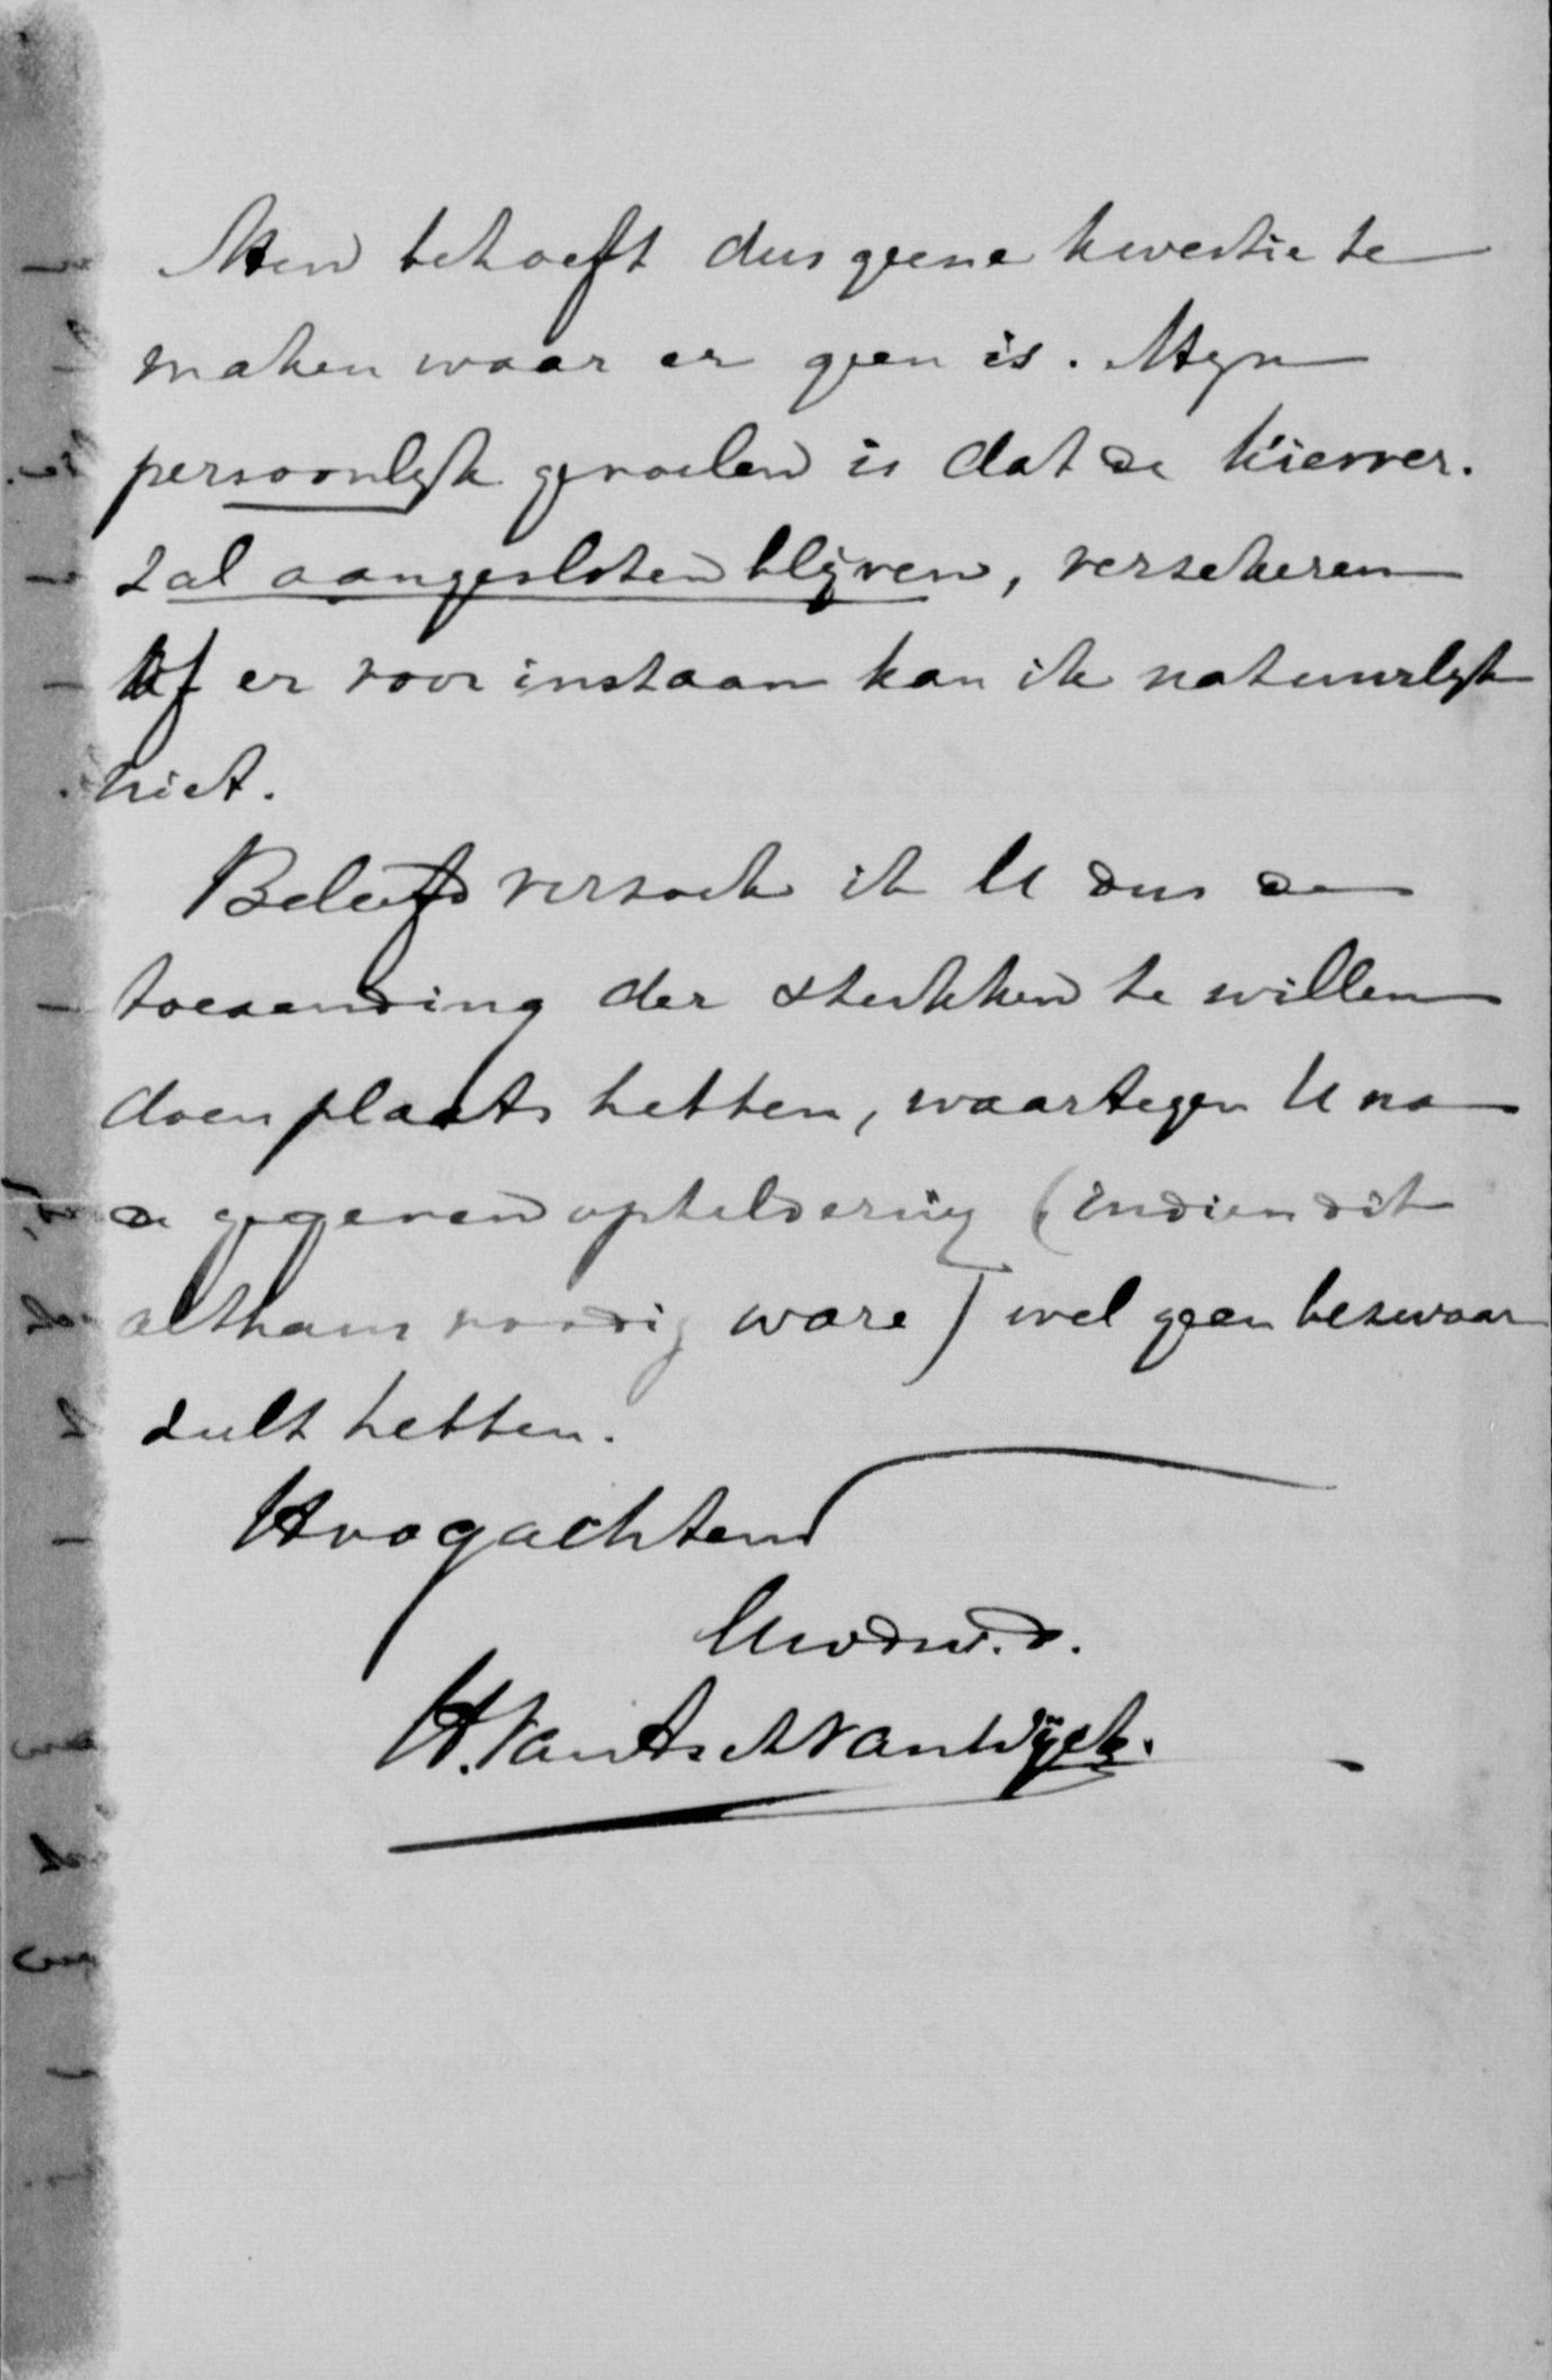 Men behoeft dus geene kwestie te
maken waar er geen is. Mijn
persoonlijk gevoelen is dat de Kiesver.
zal aangesloten blijven, verzekeren
of er voor instaan kan ik natuurlijk
niet.
Beleefd verzoek ik U dus de
toezending der stukken te willen
doen plaats hebben, waartegen U na
de gegeven opheldering (indien dit
althans noodig ware) wel geen bezwaar
zult hebben.
Hoogachtend
Uwdw.d.
H. van Asch van Wijck.